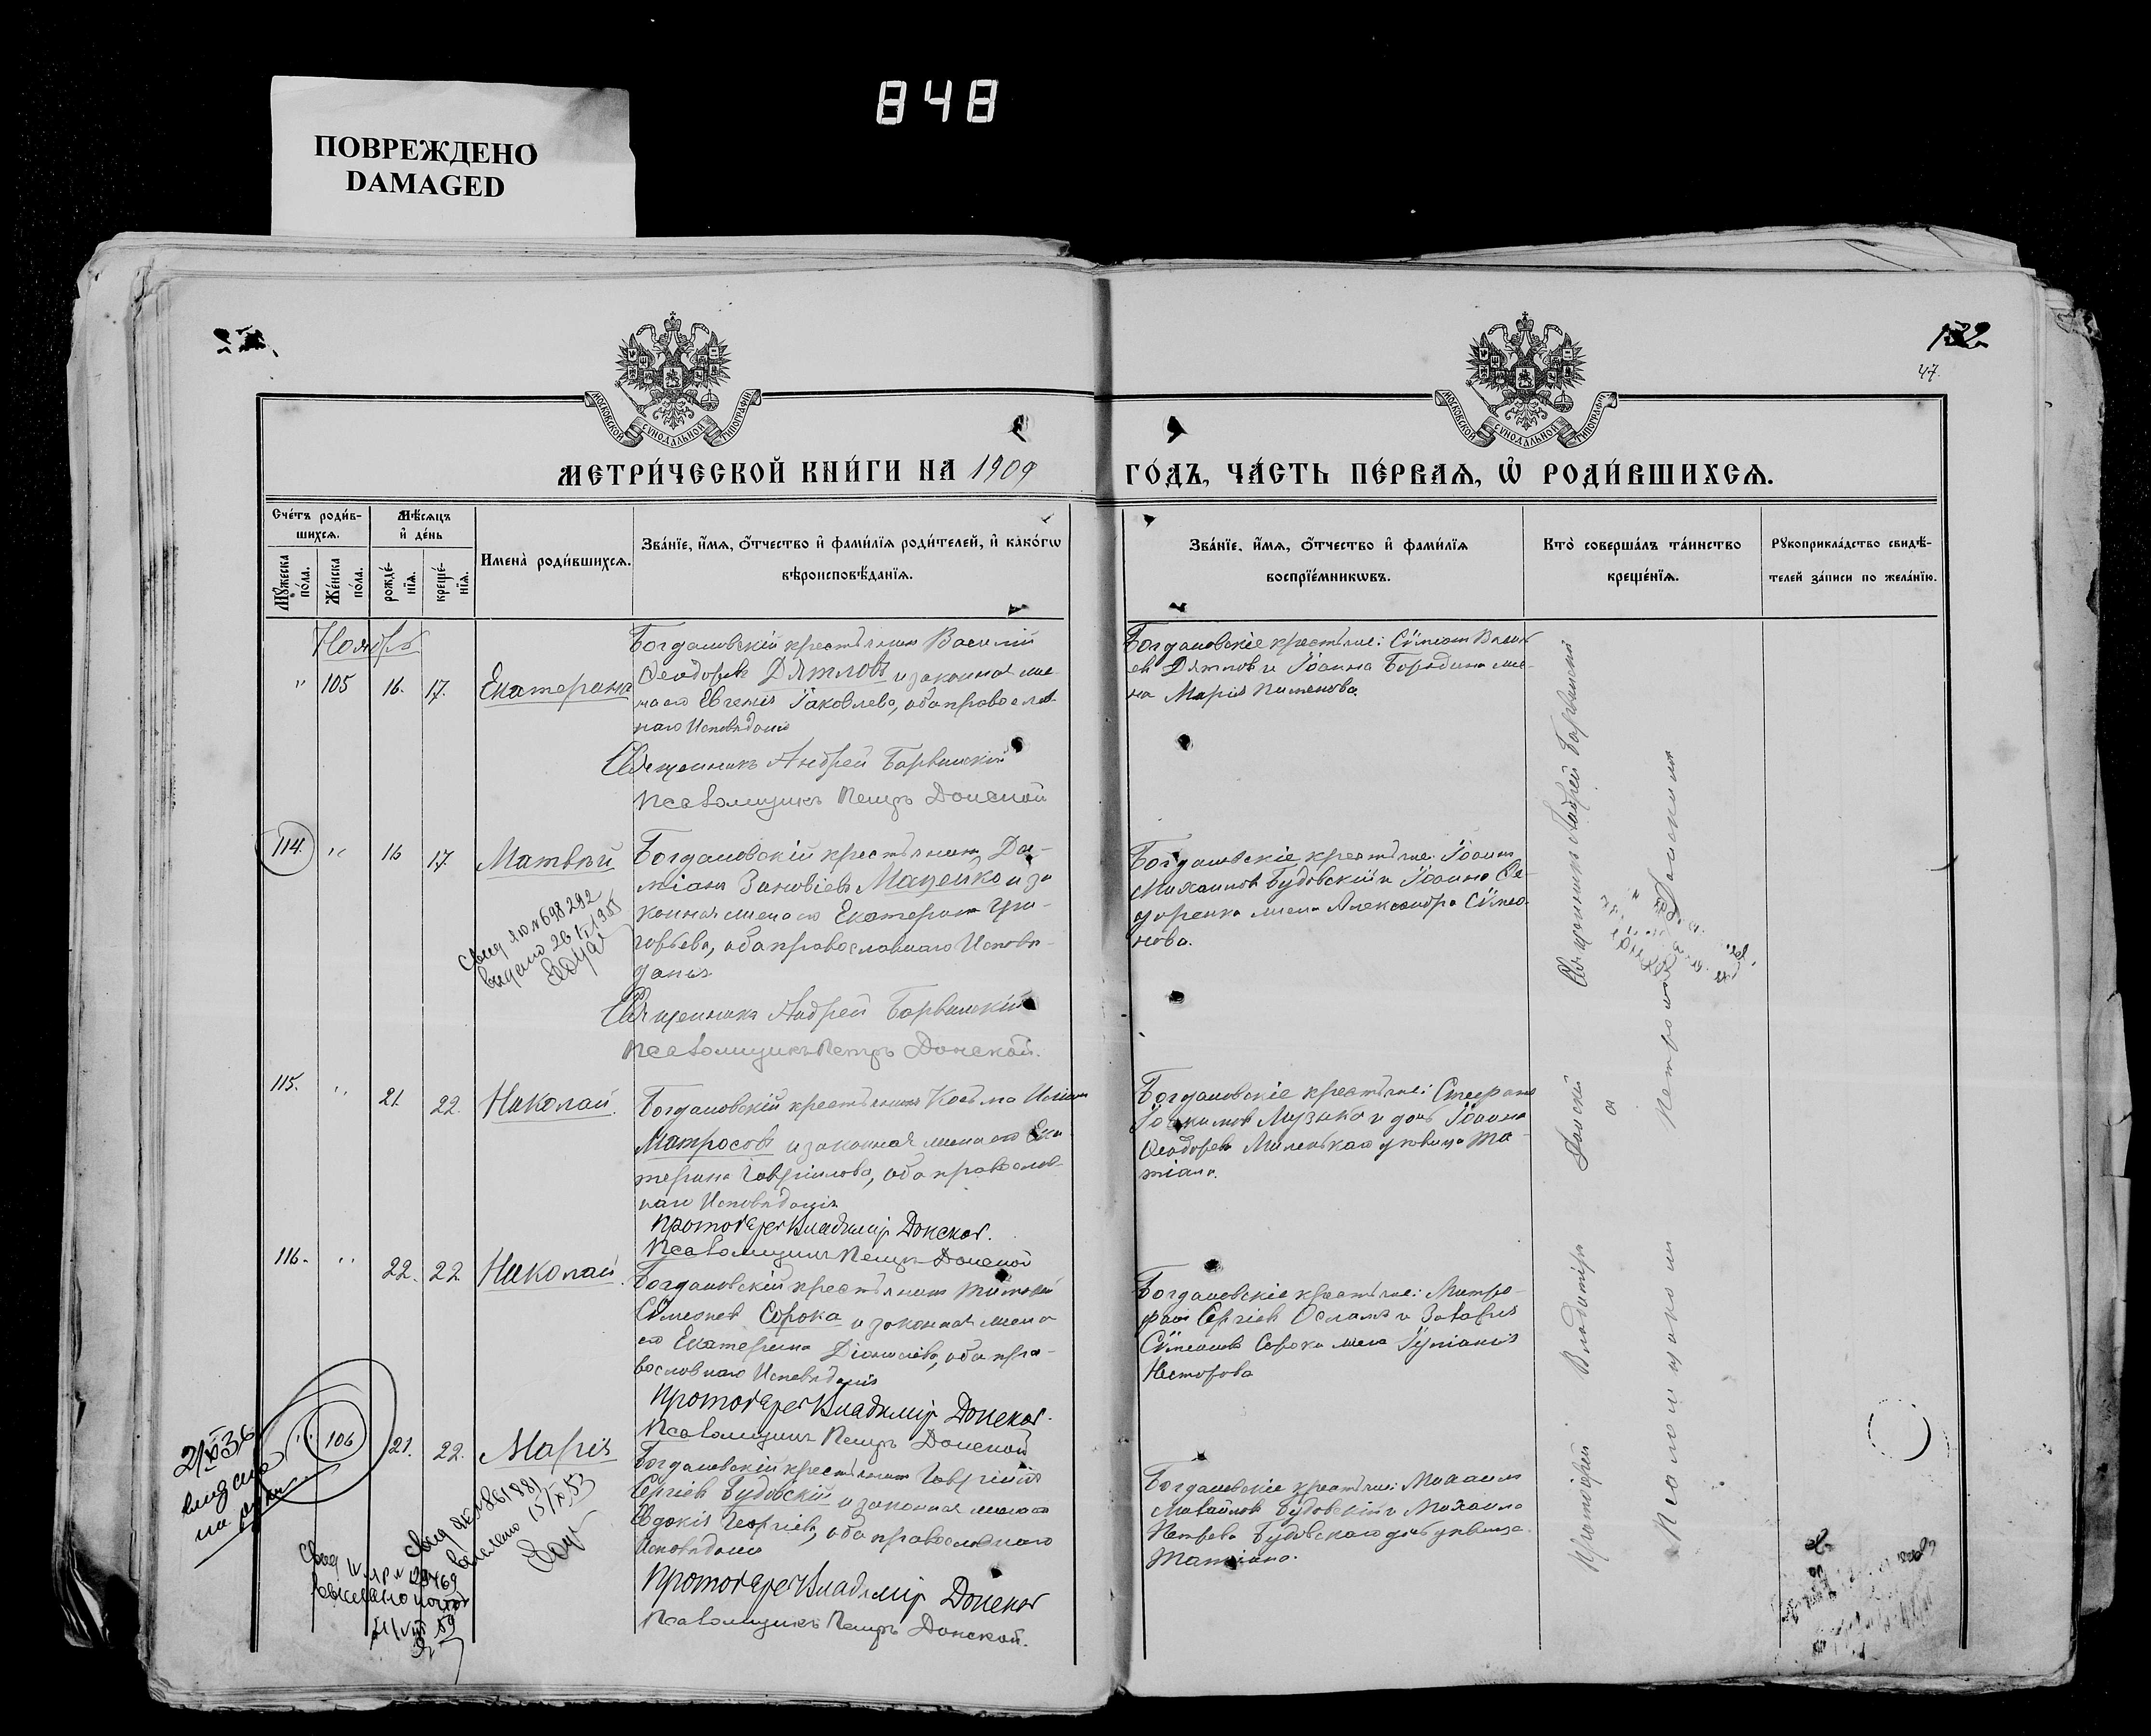 848
ПОВРЕЖДЕНО
DAMAGED
132
47.
МОСКОВСКОЙ СѴНОДАЛЬНОЙ ТИПОГРАФІИ
МОСКОВСКОЙ СѴНОДАЛЬНОЙ ТИПОГРАФІИ
МЕТРИ́ЧЕСКОЙ КНИ́ГИ НА 1909
ГО́ДЪ, ЧА́СТЬ ПЕ́РВАѦ, Ѡ҆ РОДИ́ВШИХСѦ.
Сче́тъ роди́в-
шихсѧ.
Мꙋ́жеска по́ла.
Же́нска по́ла.
Мѣ́сѧцъ
и҆ де́нь
рожде́-
нїѧ.
креще́-
нїѧ.
Имена̀ роди́вшихсѧ.
Зва́нїе, и҆́мѧ, ѻ҆́тчество и҆ фами́лїѧ роди́телей, и҆ како́гѡ
вѣроисповѣ́данїѧ.
Зва́нїе, и҆́мѧ, ѻ҆́тчество и҆ фами́лїѧ
воспрїе́мникѡвъ.
Кто̀ соверша́лъ та́инство
креще́нїѧ.
Рꙋкоприкла́дство свидѣ́-
телей за́писи по жела́нїю.
Ноябрь
" 105 16. 17. Екатерина
Богдановскій крестьянинъ Василій
Ѳеодоровъ Дятловъ и законная же-
на его Евгенія Іаковлева, оба православ-
наго Исповѣданія
Священникъ Андрей Барвинскій
Псаломщикъ Петръ Донской
Богдановскіе крестьяне: Сѵмеонъ Василь-
евъ Дятловъ и Іоанна Бородина же-
на Марія Пименова.
114. " 16 17 Матвѣй
Богдановскій крестьянинъ Да-
міанъ Зиновіевъ Мацейко и за-
конная жена его Екатерина Гри-
горьева, оба православнаго Исповѣ-
данія
Священникъ Андрей Барвинскій
Псаломщикъ Петръ Донской.
698292
выдано 26 1955
Богдановскіе крестьяне: Іоаннъ
Михаиловъ Будовскій и Іоанна
жена Александра Сѵмео-
нова.
115. " 21. 22. Николай.
Богдановскій крестьянинъ Косьма
Матросовъ и законная жена его Ека-
терина Гавріилова, оба православ-
наго Исповѣданія
Протоіерей Владиміръ Донской.
Псаломщикъ Петръ Донской
Богдановскіе крестьяне: Стефанъ
Іоакимовъ Музыка и дочь Іоанна
Ѳеодорова Миленькаго дѣвица Та-
тіана.
116. " 22. 22. Николай.
Богдановскій крестьянинъ Тимоѳей
Сѵмеоновъ Сорока и законная жена
его Екатерина Діонисіева, оба пра-
вославнаго Исповѣданія
Протоіерей Владиміръ Донской.
Псаломщикъ Петръ Донской
Богдановскіе крестьяне: Митро-
фанъ Сергіевъ и
Сѵмеонова Сорока жена Іуліанія
Несторова
" 106 21. 22. Марія
Богдановскій крестьянинъ Гавріилъ
Сергіевъ Будовскій и законная жена его
Евдокія Георгіева, оба православнаго
Исповѣданія
Протоіерей Владиміръ Донской
Псаломщикъ Петръ Донской.
Богдановскіе крестьяне: Михаилъ
Михайловъ Будовскій и Михаила
Петрова Будовскаго дочь дѣвица
Татіана.
выдана
на руки
Священникъ Андрей Барвинскій
Протоіерей Владиміръ Донской
Псаломщикомъ Петромъ Донскимъ